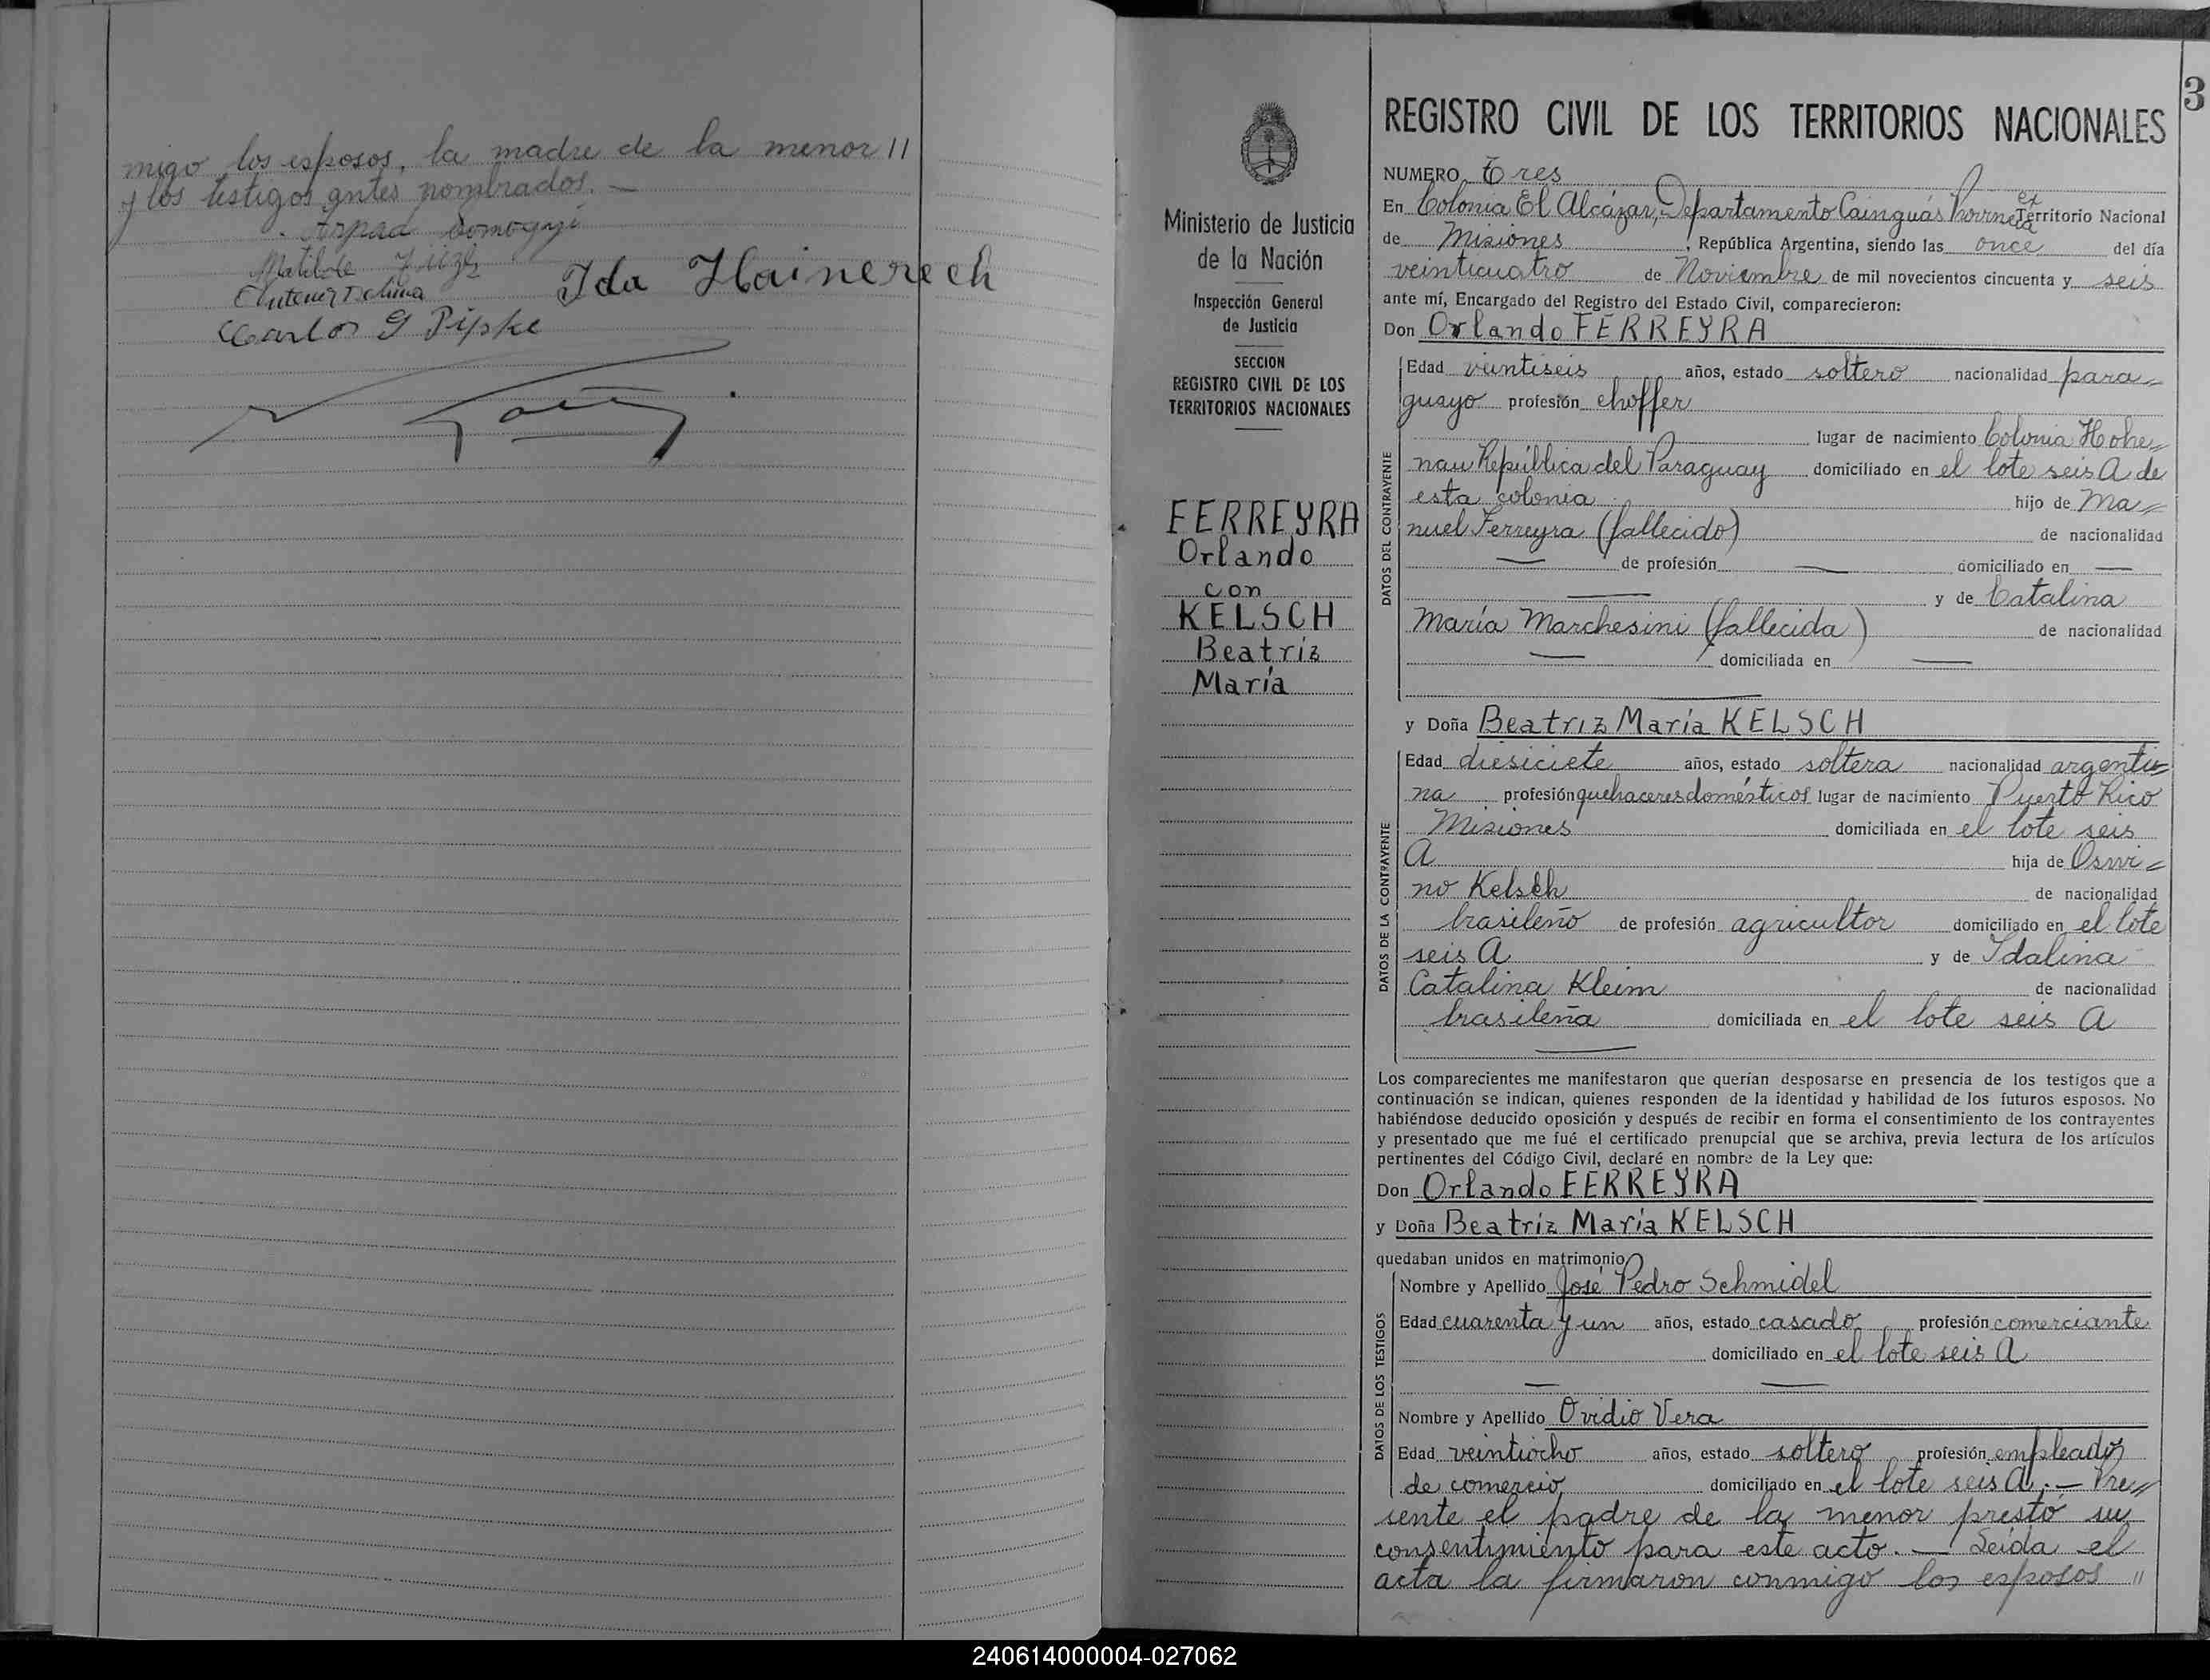 migo los esposos, la madre de la menor //
y los testigos antes nombrados. —
Arpad Somogyi
Matilde
Ida Hainerech
Carlos G Pipke
3
Ministerio de Justicia
de la Nación
Inspección General
de Justicia
SECCION
REGISTRO CIVIL DE LOS
TERRITORIOS NACIONALES
FERREYRA
Orlando
con
KELSCH
Beatriz
María
REGISTRO CIVIL DE LOS TERRITORIOS NACIONALES
NUMERO Tres
En Colonia El Alcázar, Departamento Cainguás Provincia ex Territorio Nacional
de Misiones, República Argentina, siendo las once del día
veinticuatro de Noviembre de mil novecientos cincuenta y seis
ante mí, Encargado del Registro del Estado Civil, comparecieron:
Don Orlando FERREYRA
DATOS DEL CONTRAYENTE
Edad veintiseis años, estado soltero nacionalidad para=
guayo profesión choffer
lugar de nacimiento Colonia Hohe=
nau República del Paraguay domiciliado en el lote seis A de
esta colonia hijo de Ma=
nuel Ferreyra (fallecido) de nacionalidad
— de profesión — domiciliado en —
— y de Catalina
María Marchesini (fallecida) de nacionalidad
— domiciliada en —
y Doña Beatriz María KELSCH
DATOS DE LA CONTRAYENTE
Edad diesiciete años, estado soltera nacionalidad argenti=
na profesión quehaceres domésticos lugar de nacimiento Puerto Rico
Misiones domiciliada en el lote seis
A hija de Oswi=
no Kelsch de nacionalidad
brasileño de profesión agricultor domiciliado en el lote
seis A y de Idalina
Catalina Kleim de nacionalidad
brasileña domiciliada en el lote seis A
Los comparecientes me manifestaron que querían desposarse en presencia de los testigos que a
continuación se indican, quienes responden de la identidad y habilidad de los futuros esposos. No
habiéndose deducido oposición y después de recibir en forma el consentimiento de los contrayentes
y presentado que me fué el certificado prenupcial que se archiva, previa lectura de los artículos
pertinentes del Código Civil, declaré en nombre de la Ley que:
Don Orlando FERREYRA
y Doña Beatriz María KELSCH
quedaban unidos en matrimonio
DATOS DE LOS TESTIGOS
Nombre y Apellido José Pedro Schmidel
Edad cuarenta y un años, estado casado profesión comerciante
domiciliado en el lote seis A
Nombre y Apellido Ovidio Vera
Edad veintiocho años, estado soltero profesión empleado
de comercio domiciliado en el lote seis A. — Pre//
sente el padre de la menor prestó su
consentimiento para este acto. — Leída el
acta la firmaron conmigo los esposos //
240614000004-027062